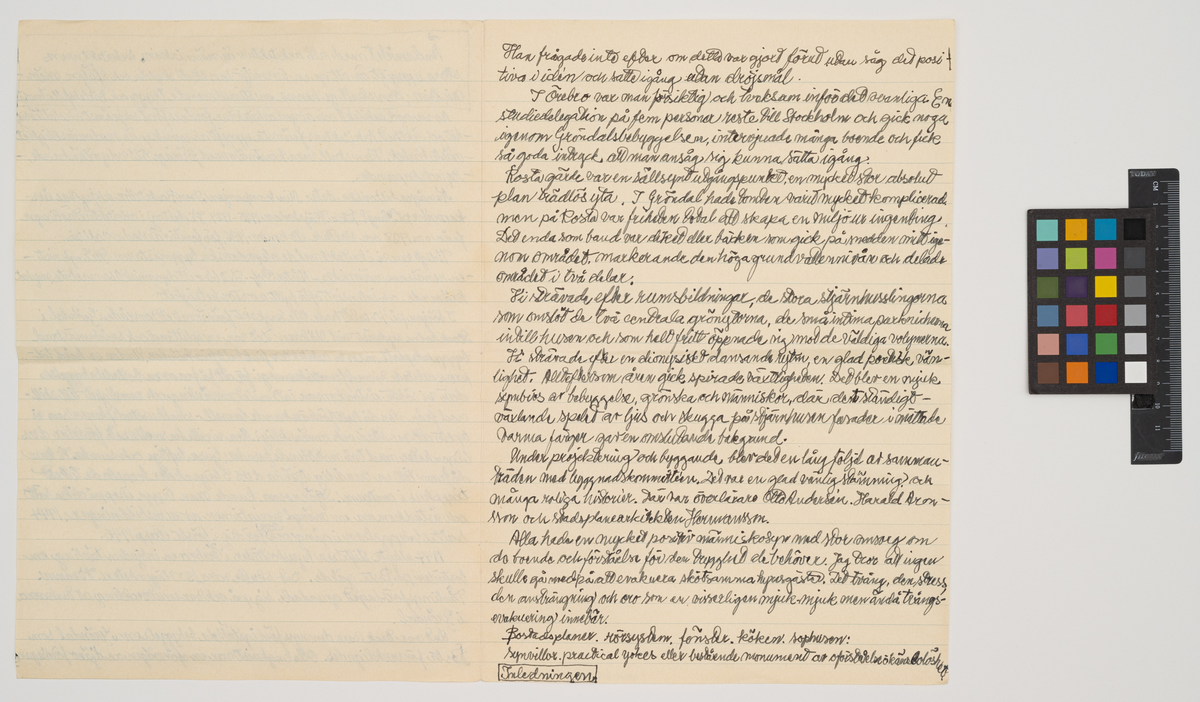 Han frågade inte efter om detta var gjort förut utan såg det posi-
tiva i idén och satte igång utan dröjsmål.
I Örebro var man försiktig och tveksam inför det ovanliga. En
studiedelegation på fem personer reste till Stockholm och gick noga
igenom Gröndalsbebyggelsen, intervjuade många boende och fick
så goda intryck att man ansåg sig kunna sätta igång.
Rosta gärde var en sällsynt utgångspunkt, en mycket stor absolut
plan trädlös yta. I Gröndal hade tomten varit mycket komplicerad
men på Rosta var friheten total att skapa en miljö ur ingenting.
Det enda som band var diket eller bäcken som gick på snedden mitt ige-
nom området, markerande den höga grundvattennivån och delade
området i två delar.
Vi strävade efter rumsbildningar, de stora stjärnhusslingorna
som omslöt de två centrala grönytorna, de små intima parknicherna
intill husen och som helt fritt öppnade sig mot de väldiga volymerna.
Vi strävade efter en dionysiskt dansande rytm, en glad poetisk vän-
lighet. Allteftersom åren gick spirade växtligheten. Det blev en mjuk
symbios av bebyggelse, grönska och människor, där det ständigt-
växlande spelet av ljus och skugga på stjärnhusen fasader i mättade
varma färger gav en omslutande bakgrund.
Under projektering och byggande blev det en lång följd av samman-
träden med byggnadskommittén. Det var en glad vänlig stämning och
många roliga historier. Där var överlärare Otto Andersén. Harald Aron-
sson och stadsplanearkitekten Hermansson.
Alla hade en mycket positiv människosyn med stor omsorg om
de boende och förståelse för den trygghet de behöver. Jag tror att ingen
skulle gå med på att evakuera skötsamma hyresgäster. Det tvång, den stress
den ansträngning och oro som en visserligen mjuk-mjuk men ändå tvångs-
evakuering innebär.
Bostadsplaner. rörsystem. fönster. köken. sophusen:
synvillor. practical yokes eller bestående monument av
Inledningen